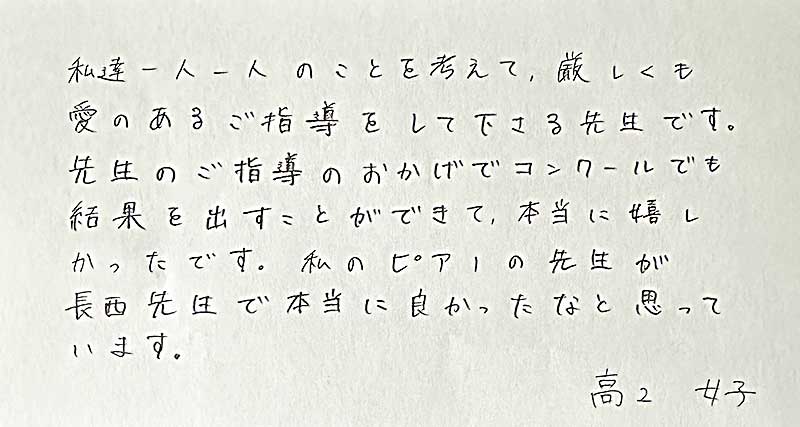 私達一人一人のことを考えて、厳しくも
愛のあるご指導をして下さる先生です。
先生のご指導のおかげでコンクールでも
結果を出すことができて、本当に嬉し
かったです。私のピアノの先生が
長西先生で本当に良かったなと思って
います。
高2 女子